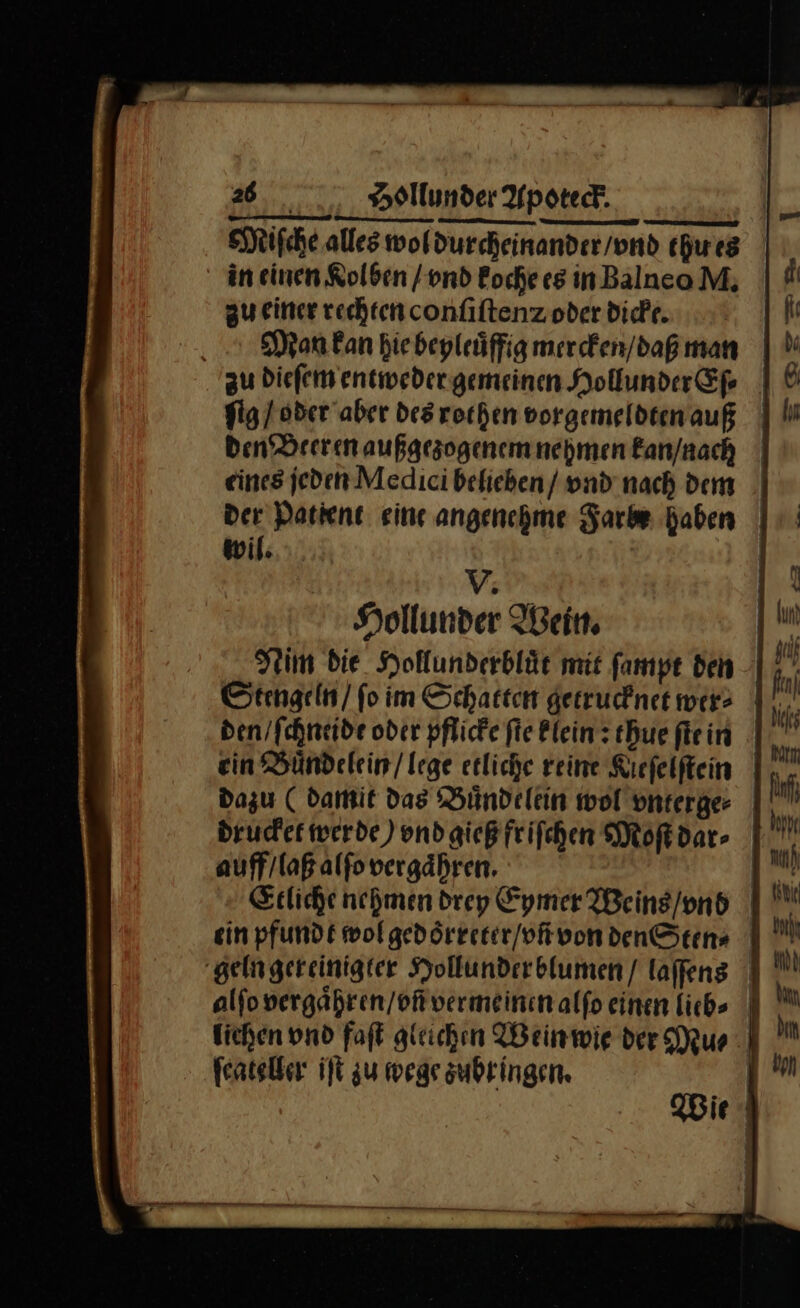 26 Hollunder Apoteck.
Miſche alles wol durcheinander/vnd thu es
in einen Kolben / vnd koche es in Balneo M.
zu einer rechten conſiſtenz oder dicke.
Man kan hie beyleuͤffig mercken/daß man
zu dieſem entweder gemeinen Hollunder Eſ⸗
ſig / oder aber des rothen vorgemeldten auß
den Beeren außgezogenem nehmen kan/nach
eines jeden Medici belieben / vnd nach dem
der Patient eine angenehme Farbe haben
wil.
V.
Hollunder Wein.
Nim die Hollunderbluͤt mit ſampt den
Stengeln / ſo im Schatten getrucknet wer⸗
den/ſchneide oder pflicke ſie klein: thue ſie in
ein Buͤndelein / lege etliche reine Kieſelſtein
dazu ( damit das Buͤndelein wol vnterge⸗
drucket werde) vnd gieß friſchen Moſt dar⸗
auff/laß alſo vergaͤhren.
Etliche nehmen drey Eymer Weins/vnd
ein pfundt wol gedoͤrreter/vñ von den Sten⸗
geln gereinigter Hollunderblumen / laſſens
alſo vergaͤhren/vñ vermeinen alſo einen lieb⸗
lichen vnd faſt gleichen Wein wie der Mus⸗
ſcateller iſt zu wege zubringen.
Wie